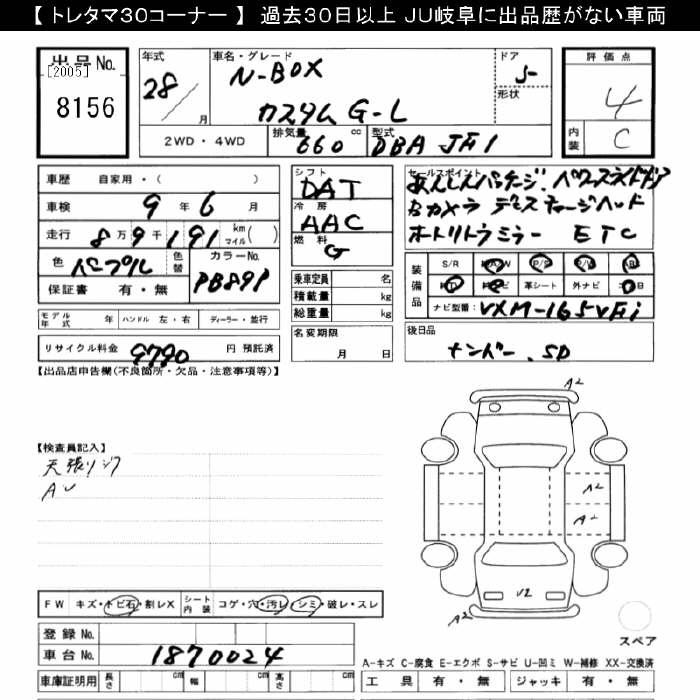 【 トレタマ30コーナー 】 過去30日以上 JU岐阜に出品歴がない車両
出品 No.
[2005]
8156
年式
28
月
車名・グレード
N-BOX
カスタム G-L
ドア
5
形状
2WD・4WD
排気量
660 cc
型式
DBA JF1
評価点
4
内装
C
車歴 自家用・( )
車検 9 年 6 月
走行 8 万 9 千 191 km マイル( )
色 パープル 色替
カラーNo.
PB89P
保証書 有・無
シフト
DAT
冷房
AAC
燃料
G
乗車定員 名
積載量 kg
総重量 kg
セールスポイント
あんしんパッケージ、パワースライドドア
Bカメラ
オートリトラミラー ETC
装備品
S/R A/W P/S P/W
革シート 外ナビ
ナビ型番: VXM-165VFi
モデル年式 年 ハンドル 左・右 ディーラー・並行
リサイクル料金 9790 円 預託済
名変期限
月 日
後日品
ナンバー、SD
【出品店申告欄(不良箇所・欠品・注意事項等)】
【検査員記入】
天張リジワ
AU
A2
A2
A2
V2
A2
スペア
FW キズ・トビ石・割レX シート内装 コゲ・穴・汚レ・シミ・破レ・スレ
登録 No.
車台 No. 1870024
車庫証明用 長さ cm 幅 cm 高さ cm
A-キズ C-腐食 E-エクボ S-サビ U-凹ミ W-補修 XX-交換済
工具 有・無 ジャッキ 有・無